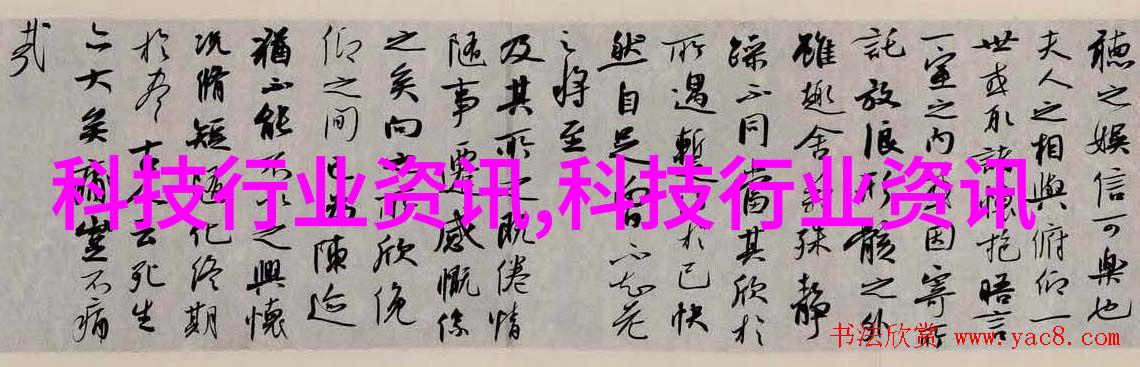 聽之娛信可樂也
夫人之相與俯仰一
世或取諸懷抱晤言
一室之內或因寄所
託放浪形骸之外
雖趣舍萬殊靜
躁不同當其欣於
所遇暫於己快
然自足不知老
之將至
及其所之既倦情
隨事遷感慨係
之矣向之欣俛
仰之間陳迹
猶不能不以之興懷
況脩短隨化終期
於盡古人云死生
亦大矣豈不痛
哉
科技行业资讯,科技行业资讯
书法欣赏 www.yac8.com